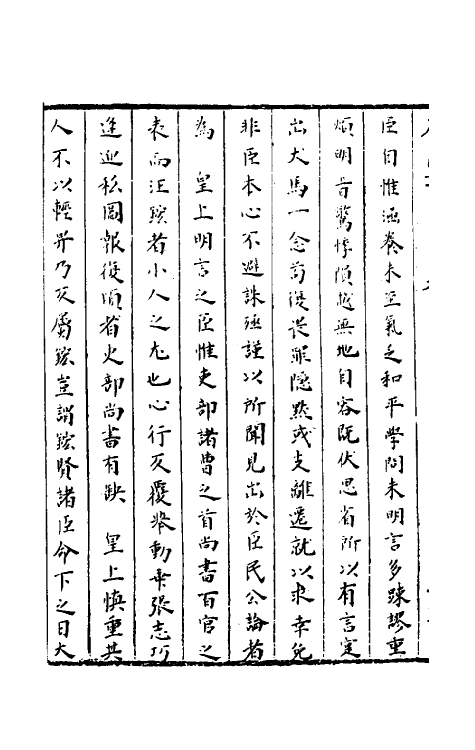 臣自惟涵養未至氣乏和平學問未明言多踈謬重
煩明旨驚悸隕越無地自容既伏思省所以有言寔
出犬馬一念苟復畏罪隱默或支離遷就以求幸免
非臣本心不避誅殛謹以所聞見出於臣民公論者
為　皇上明言之臣惟吏部諸曹之首尚書百官之
表而汪鋐者小人之尤也心行反覆舉動乖張志巧
逢迎私圖報復頃者吏部尚書有缺　皇上慎重其
人不以輕畀乃反屬鋐豈謂鋐賢諸臣命下之日大